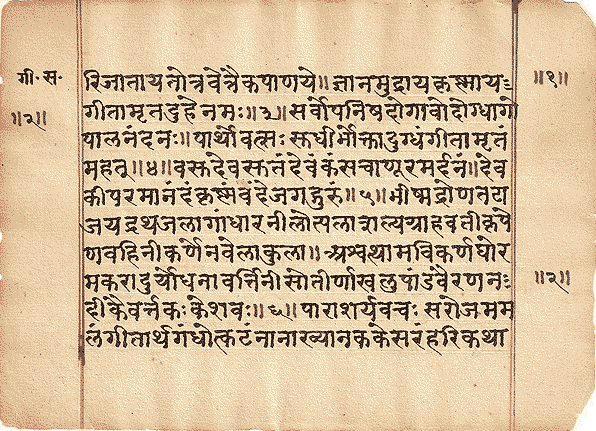 गी॰ स॰
॥२॥
रिजाताय तोत्रवेत्रैकपाणये॥ ज्ञानमुद्राय कृष्माय
गीतामृतदुहे नमः॥३॥ सर्वोपनिषदो गावो दोग्धा गो
पालनंदनः॥ पार्थो वत्सः स्तधीर्भोक्ता दुग्धं गीतामृतं
महत्॥४॥ वस्तदेवस्तनं देवं कंसचाणूरमर्दनं॥ देव
कीपरमानंदं कृष्मं वंदे जगद्गुरुं॥५॥ भीष्मद्रोणतटा
जयद्रथजला गांधारनीलोत्पला शल्यग्राहवती कृपे
णवहिनी कर्णेन वेलाकुला॥ अश्वथामविकर्णघोर
मकरा दुर्योधनावर्त्तिनी सोतीर्णा खलु पांडवै रणनः
दी कैवर्त्तकः केशवः॥६॥ पाराशर्यवचः सरोजमम
लं गीतार्थगंधोत्कटं नानाख्यानककेसरं हरिकथा
॥१॥
॥२॥